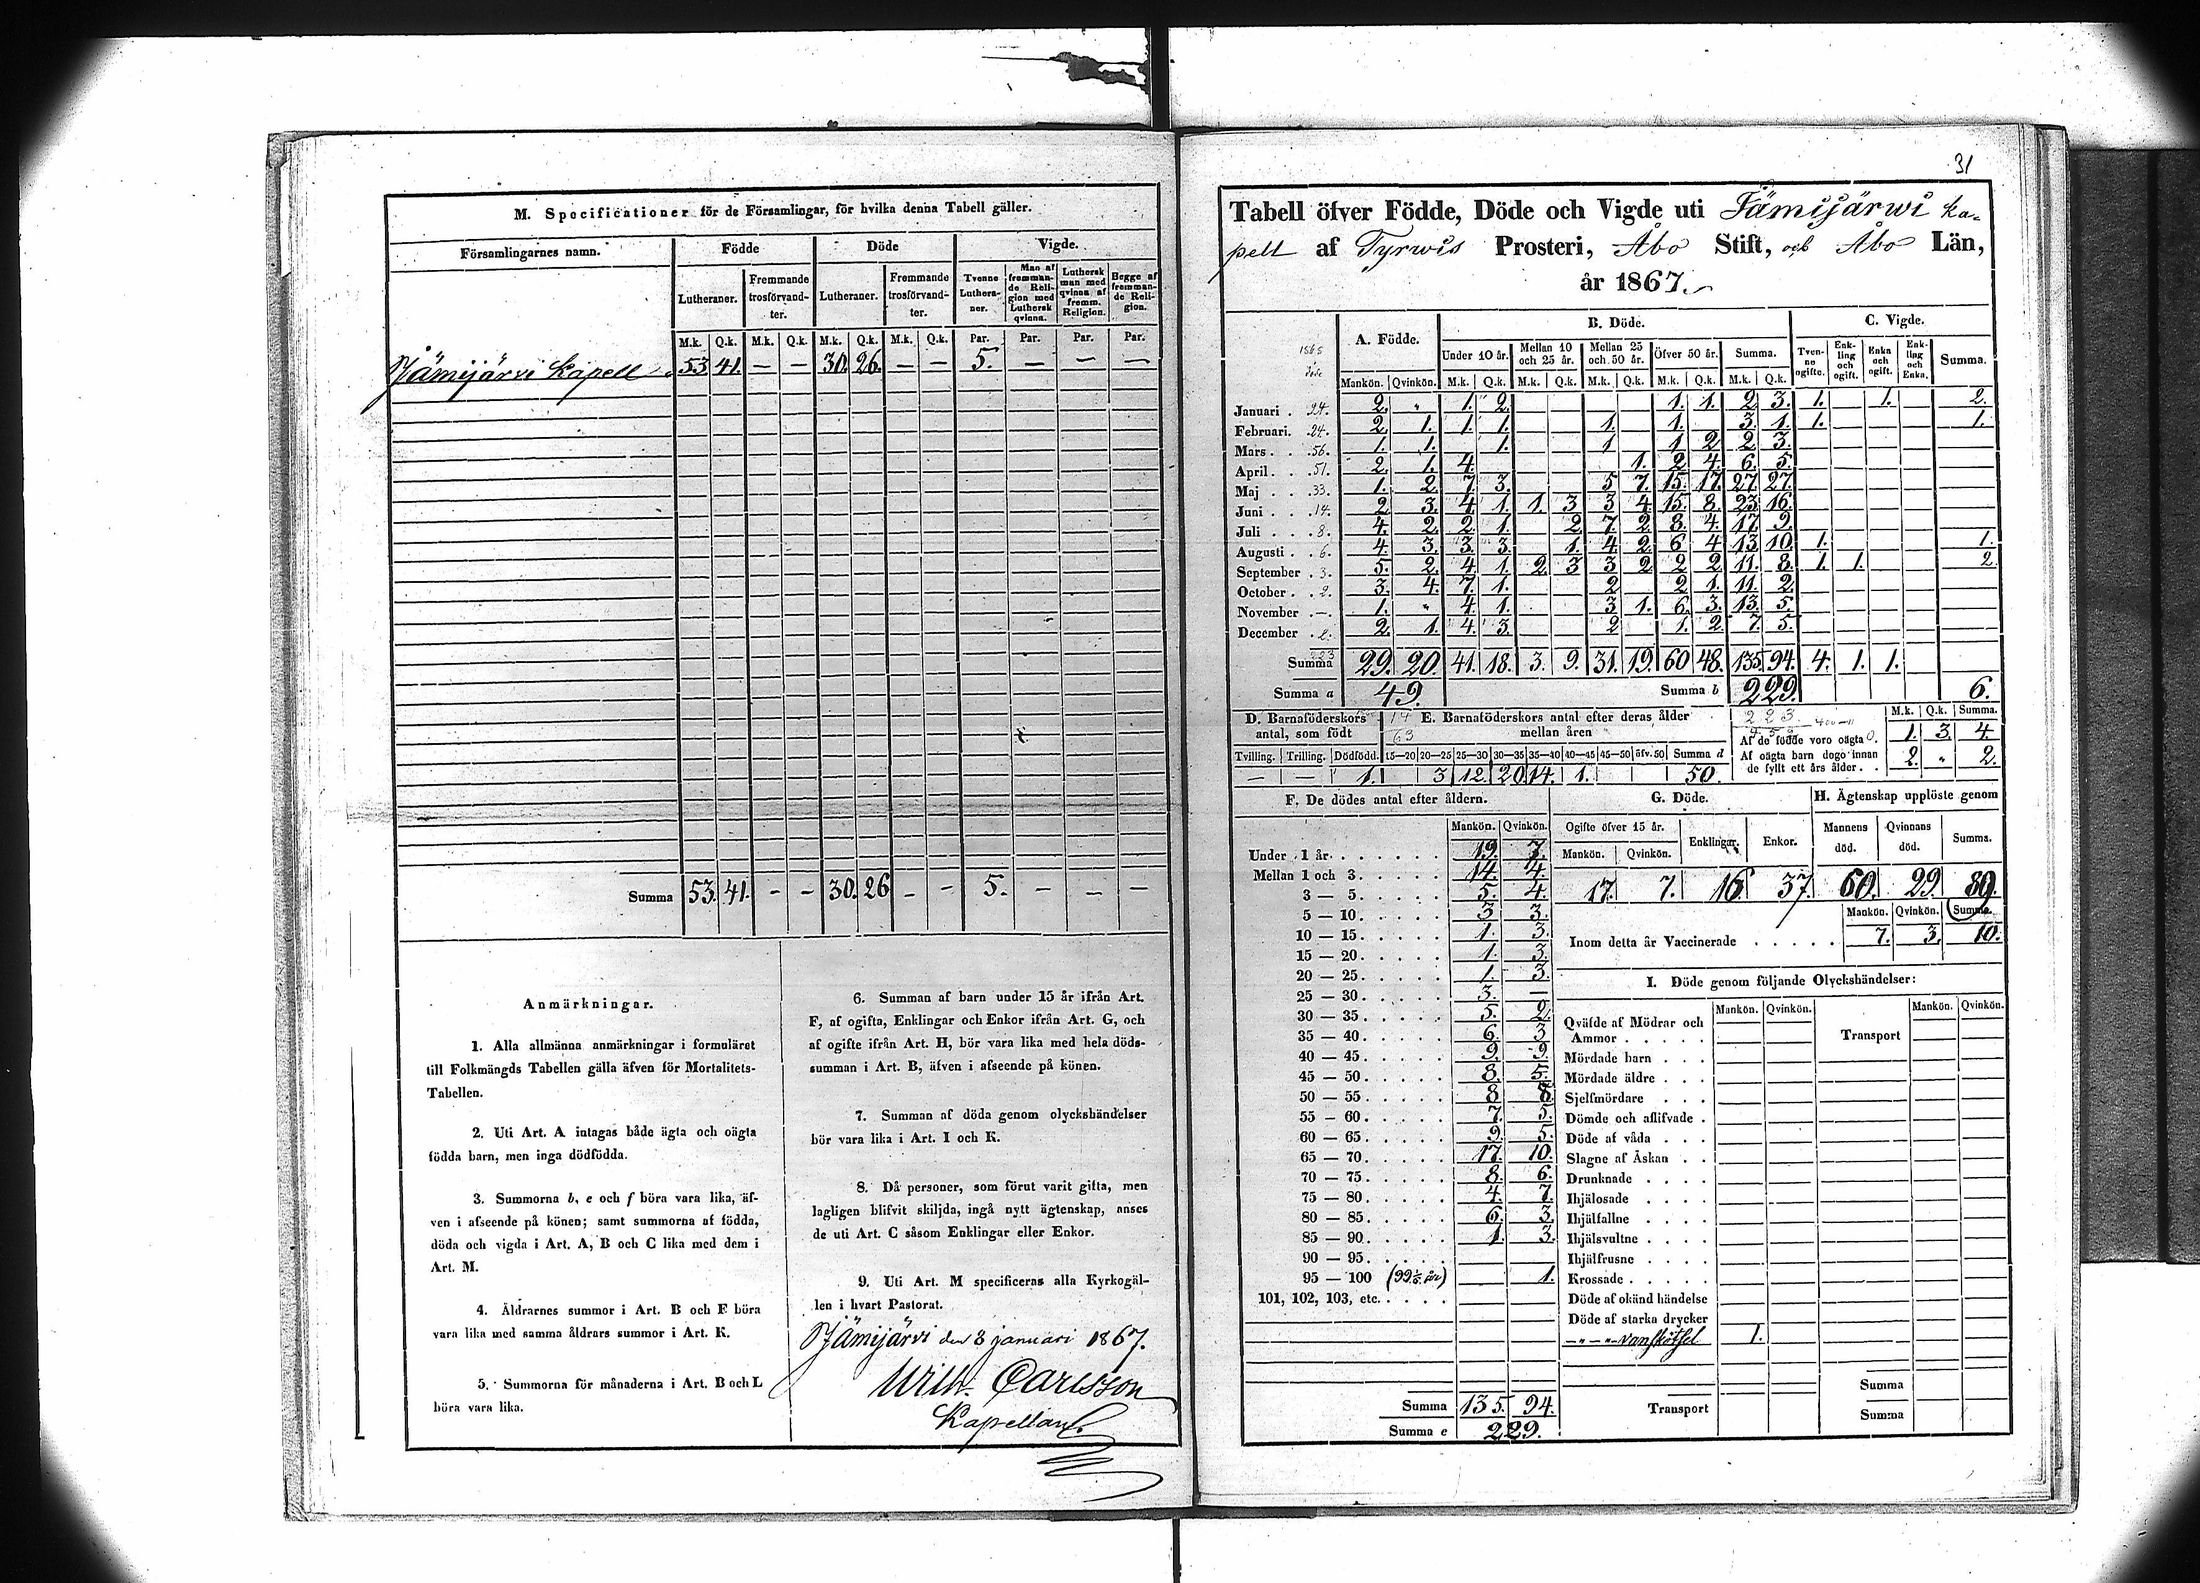 M. Specificationer för de Församlingar, för hvilka denna Tabell gäller.
Församlingarnes namn. Födde Döde Vigde.
Lutheraner. Fremmande trosförvandter. Lutheraner. Fremmande trosförvandter. Tvenne Lutheraner. Man af fremmande Religion med Luthersk qvinna. Luthersk man med qvinna af fremm. Religion. Begge af fremmande Religion.
M.k. Q.k. M.k. Q.k. M.k. Q.k. M.k. Q.k. Par. Par. Par. Par.
Jämijärvi Kapell 53 41. — — 30. 26. — — 5. — — —
Summa 53. 41. - - 30. 26 - - 5. — — —
Anmärkningar.
1. Alla allmänna anmärkningar i formuläret
till Folkmängds Tabellen gälla äfven för Mortalitets-
Tabellen.
2. Uti Art. A intagas både ägta och oägta
födda barn, men inga dödfödda.
3. Summorna b, e och f böra vara lika, äf-
ven i afseende på könen; samt summorna af födda,
döda och vigda i Art. A, B och C lika med dem i
Art. M.
4. Åldrarnes summor i Art. B och F böra
vara lika med samma åldrars summor i Art. K.
5. Summorna för månaderna i Art. B och L
böra vara lika.
6. Summan af barn under 15 år ifrån Art.
F, af ogifta, Enklingar och Enkor ifrån Art. G, och
af ogifte ifrån Art. H, bör vara lika med hela döds-
summan i Art. B, äfven i afseende på könen.
7. Summan af döda genom olyckshändelser
bör vara lika i Art. I och K.
8. Då personer, som förut varit gifta, men
lagligen blifvit skiljda, ingå nytt ägtenskap, anses
de uti Art. C såsom Enklingar eller Enkor.
9. Uti Art. M specificeras alla Kyrkogäl-
len i hvart Pastorat.
Jämijärvi den 8 januari 1867.
Wilh. Carlsson
Kapellan.
31
Tabell öfver Födde, Döde och Vigde uti Jämijärwi ka-
pell af Tyrwis Prosteri, Åbo Stift, och Åbo Län,
år 1867.
A. Födde. B. Döde. C. Vigde.
1865
Under 10 år. Mellan 10 och 25 år. Mellan 25 och 50 år. Öfver 50 år. Summa. Tvenne ogifte. Enkling och ogift. Enka och ogift. Enkling och Enka. Summa.
Mankön. Qvinkön. M.k. Q.k. M.k. Q.k. M.k. Q.k. M.k. Q.k. M.k. Q.k.
Januari . 24. 2. " 1. 2. 1. 1. 2 3. 1. 1. 2.
Februari. 24. 2. 1. 1. 1. 1. 1. 3. 1. 1. 1.
Mars . . 56. 1. 1. 1. 1 1 2 2 3.
April . . 51. 2. 1. 4. 1. 2 4. 6. 5.
Maj . . . 33. 1. 2. 7. 3. 5 7. 15. 17. 27. 27.
Juni . . . 14. 2 3. 4. 1. 1. 3 3 4. 15. 8. 23. 16.
Juli . . . 8. 4. 2. 2 1. 2 7. 2. 8. 4. 17. 9.
Augusti . . 6. 4. 3. 3. 3. 1. 4. 2. 6 4 13. 10. 1. 1.
September . 3. 5. 2. 4. 1. 2. 3 3 2 2 2 11. 8. 1. 1. 2.
October . . 2. 3. 4. 7. 1. 2 2 1. 11. 2.
November . —. 1. " 4. 1. 3 1. 6. 3. 13. 5.
December . 2. 2. 1. 4. 3. 2 1. 2. 7. 5.
Summa 223 29. 20. 41. 18. 3. 9. 31. 19. 60 48. 135. 94. 4. 1. 1.
Summa a 49. Summa b 229. 6.
D. Barnaföderskors antal, som födt
14 63
E. Barnaföderskors antal efter deras ålder mellan åren
223
M.k. Q.k. Summa.
Af de födde voro oägta 1. 3. 4.
Af oägta barn dogo innan de fyllt ett års ålder . . 2. " 2.
Tvilling. Trilling. Dödfödd. 15—20 20—25 25—30 30—35 35—40 40—45 45—50 öfv. 50 Summa d
— — 1. 3 12. 20. 14. 1. 50.
F. De dödes antal efter åldern.
Mankön. Qvinkön.
Under 1 år. 19. 7.
Mellan 1 och 3. 14. 4.
3 — 5. 5. 4.
5 — 10. 3 3.
10 — 15. 1. 3.
15 — 20. 1. 3.
20 — 25. 1. 3.
25 — 30. 3. —
30 — 35. 5. 2.
35 — 40. 6. 3
40 — 45. 9. 9.
45 — 50. 8. 5.
50 — 55. 8 8
55 — 60. 7. 5.
60 — 65. 9. 5.
65 — 70. 17. 10.
70 — 75. 8. 6.
75 — 80. 4. 7.
80 — 85. 6. 3.
85 — 90. 1. 3.
90 — 95.
95 — 100 1.
101, 102, 103, etc.
Summa 135. 94.
Summa e 229.
G. Döde.
Ogifte öfver 15 år. Enklingar. Enkor.
Mankön. Qvinkön.
17. 7. 16. 37.
H. Ägtenskap upplöste genom
Mannens död. Qvinnans död. Summa.
60. 29. 89.
Mankön. Qvinkön. Summa.
Inom detta år Vaccinerade . . . . . 7. 3. 10.
I. Döde genom följande Olyckshändelser:
Mankön. Qvinkön. Mankön. Qvinkön.
Qväfde af Mödrar och
Ammor . . . . . Transport
Mördade barn . . .
Mördade äldre . . .
Sjelfmördare . . .
Dömde och aflifvade .
Döde af våda . . .
Slagne af Åskan . .
Drunknade . . . .
Ihjälosade . . . .
Ihjälfallne . . . .
Ihjälsvultne . . . .
Ihjälfrusne . . . .
Krossade . . . . .
Döde af okänd händelse
Döde af starka drycker
— " — " — vanskötsel 1.
Summa
Transport Summa